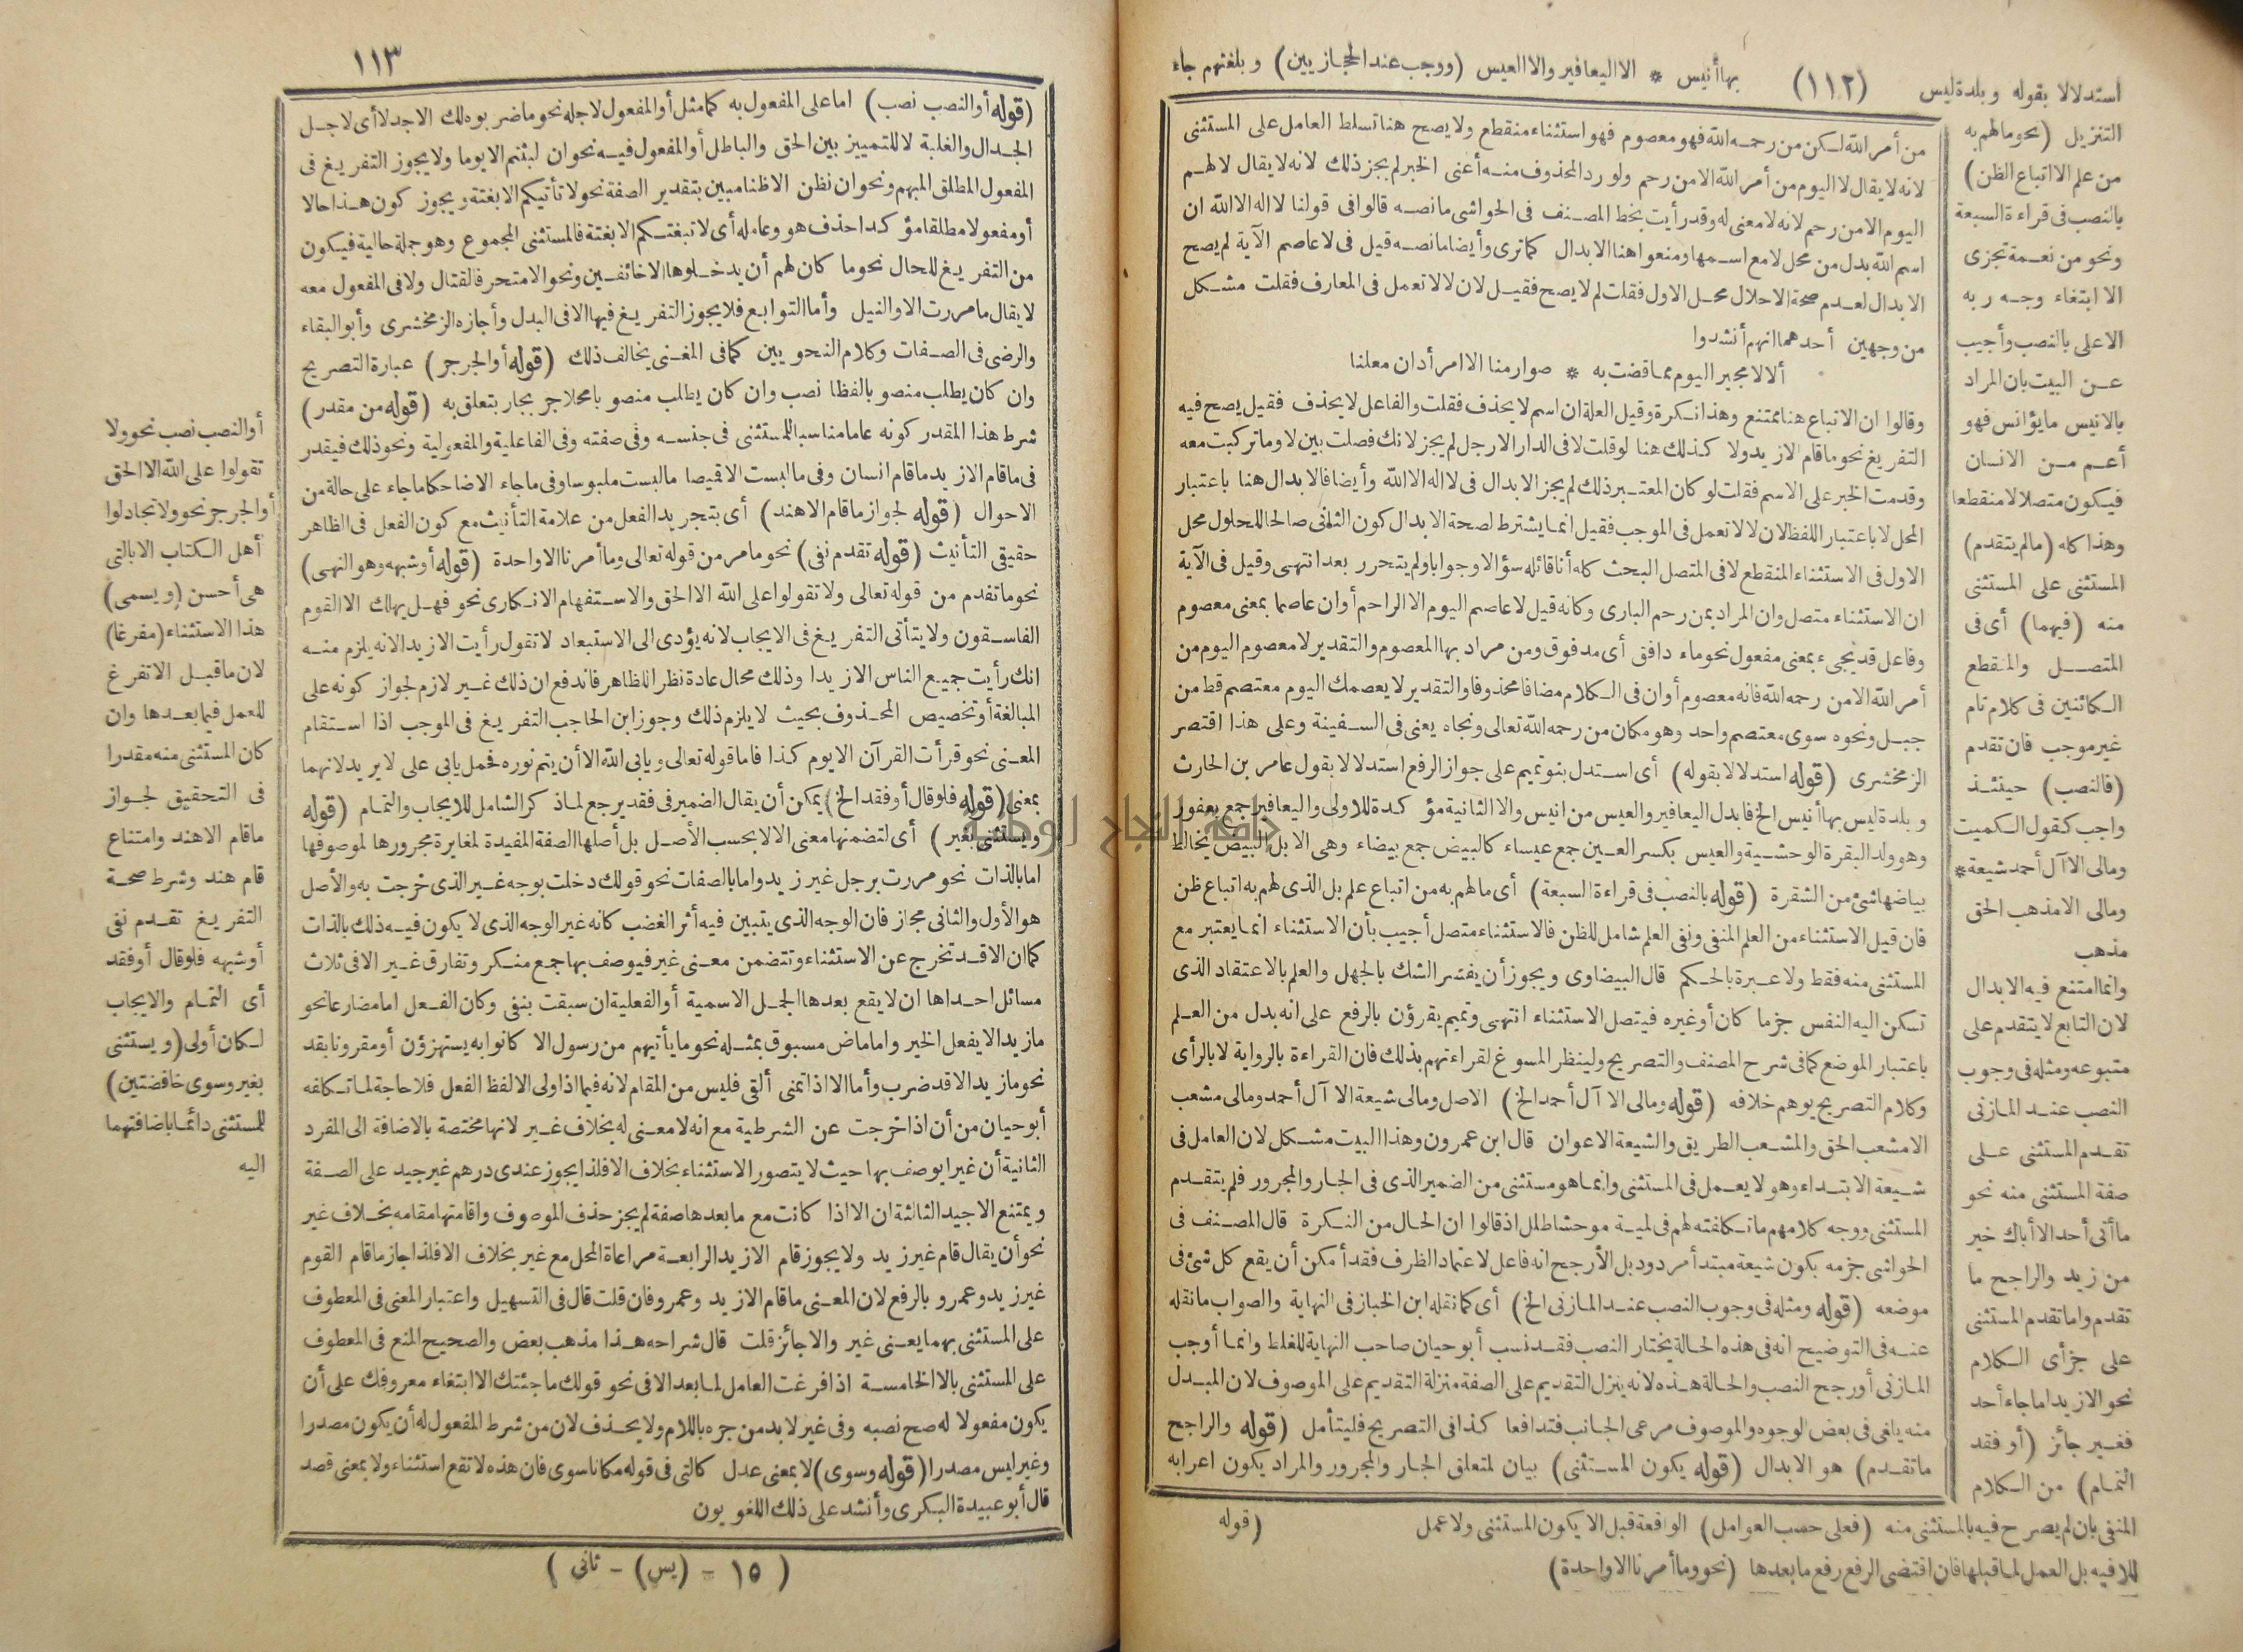 استدلالا بقوله وبلدة ليس (١١٢) بها أنيس * الا اليعافير والا العيس (ووجب عند الحجازيين) وبلغتهم جاء
التنزيل (نحو مالهم به
من علم الا اتباع الظن)
بالنصب فى قراءة السبعة
ونحو من نعمة تجزى
الا ابتغاء وجه ربه
الاعلى بالنصب وأجيب
عن البيت بان المراد
بالانيس ما يؤانس فهو
أعم من الانسان
فيكون متصلا لا منقطعا
وهذا كله (مالم يتقدم)
المستثنى على المستثنى
منه (فيهما) أى فى
المتصل والمنقطع
الكائنين فى كلام تام
غير موجب فان تقدم
(فالنصب) حينئذ
واجب كقول الكميت
ومالى الا آل أحمد شيعة *
ومالى الا مذهب الحق
مذهب
وانما امتنع فيه الابدال
لان التابع لا يتقدم على
متبوعه ومثله فى وجوب
النصب عند المازنى
تقدم المستثنى على
صفة المستثنى منه نحو
ما أتى أحد الا أباك خير
من زيد والراجح ما
تقدم واما تقدم المستثنى
على جزأى الكلام
نحو الا زيدا ما جاء أحد
فغير جائز (أو فقد
التمام) من الكلام
المنفى بان لم يصرح فيه بالمستثنى منه (فعلى حسب العوامل) الواقعة قبل الا يكون المستثنى ولا عمل
للا فيه بل العمل لما قبلها فان اقتضى الرفع رفع ما بعدها (نحو وما أمرنا الا واحدة)
من أمر الله لكن من رحمه الله فهو معصوم فهو استثناء منقطع ولا يصح هنا تسلط العامل على المستثنى
لانه لا يقال لا اليوم من أمر الله الا من رحم ولو رد المحذوف منه أعنى الخبر لم يجز ذلك لانه لا يقال لا لهم
اليوم الا من رحم لانه لا معنى له وقد رأيت بخط المصنف فى الحواشى ما نصه قالوا فى قولنا لا اله الا الله ان
اسم الله بدل من محل لا مع اسمها ومنعوا هنا الابدال كما ترى وأيضا ما نصه قيل فى لا عاصم الآية لم يصح
الابدال لعدم صحة الاحلال محل الاول فقلت لم لا يصح فقيل لان لا لا تعمل فى المعارف فقلت مشكل
من وجهين أحدهما انهم أنشدوا
ألا لا مجير اليوم مما قضت به * صوارمنا الا امرأ دان معلنا
وقالوا ان الاتباع هنا ممتنع وهذا نكرة وقيل العلة ان اسم لا يحذف فقلت والفاعل لا يحذف فقيل يصح فيه
التفريغ نحو ما قام الا زيد ولا كذلك هنا لو قلت لا فى الدار الا رجل لم يجز لانك فصلت بين لا وما تركبت معه
وقدمت الخبر على الاسم فقلت لو كان المعتبر ذلك لم يجز الابدال فى لا اله الا الله وأيضا فالابدال هنا باعتبار
المحل لا باعتبار اللفظ لان لا لا تعمل فى الموجب فقيل انما يشترط لصحة الابدال كون الثانى صالحا للحلول محل
الاول فى الاستثناء المنقطع لا فى المتصل البحث كله أنا قائله سؤالا وجوابا ولم يتحرر بعد انتهى وقيل فى الآية
ان الاستثناء متصل وان المراد بمن رحم البارى وكانه قيل لا عاصم اليوم الا الراحم أو ان عاصما بمعنى معصوم
وفاعل قد يجىء بمعنى مفعول نحو ماء دافق أى مدفوق ومن مراد بها المعصوم والتقدير لا معصوم اليوم من
أمر الله الا من رحمه الله فانه معصوم أو ان فى الكلام مضافا محذوفا والتقدير لا يعصمك اليوم معتصم قط من
جبل ونحوه سوى معتصم واحد وهو مكان من رحمه الله تعالى ونجاه يعنى فى السفينة وعلى هذا اقتصر
الزمخشرى (قوله استدلالا بقوله) أى استدل بنو تميم على جواز الرفع استدلالا بقول عامر بن الحارث
وبلدة ليس بها أنيس الخ فابدل اليعافير والعيس من انيس والا الثانية مؤكدة للاولى واليعافير جمع يعفور
وهو ولد البقرة الوحشية والعيس بكسر العين جمع عيساء كالبيض جمع بيضاء وهى الابل البيض يخالط
بياضها شئ من الشقرة (قوله بالنصب فى قراءة السبعة) أى مالهم به من اتباع علم بل الذى لهم به اتباع ظن
فان قيل الاستثناء من العلم المنفى ونفى العلم شامل للظن فالاستثناء متصل أجيب بأن الاستثناء انما يعتبر مع
المستثنى منه فقط ولا عبرة بالحكم قال البيضاوى ويجوز أن يفسر الشك بالجهل والعلم بالاعتقاد الذى
تسكن اليه النفس جزما كان أو غيره فيتصل الاستثناء انتهى وتميم يقرؤن بالرفع على انه بدل من العلم
باعتبار الموضع كما فى شرح المصنف والتصريح ولينظر المسوغ لقراءتهم بذلك فان القراءة بالرواية لا بالرأى
وكلام التصريح يوهم خلافه (قوله ومالى الا آل أحمد الخ) الاصل ومالى شيعة الا آل أحمد ومالى مشعب
الا مشعب الحق والمشعب الطريق والشيعة الاعوان قال ابن عمرون وهذا البيت مشكل لان العامل فى
شيعة الابتداء وهو لا يعمل فى المستثنى وانما هو مستثنى من الضمير الذى فى الجار والمجرور فلم يتقدم
المستثنى ووجه كلامهم ما تكلفته لهم فى لمية موحشا طلل اذ قالوا ان الحال من النكرة قال المصنف فى
الحواشى جزمه بكون شيعة مبتدأ مردود بل الأرجح انه فاعل لاعتماد الظرف فقد أمكن أن يقع كل شئ فى
موضعه (قوله ومثله فى وجوب النصب عند المازنى الخ) أى كما نقله ابن الخباز فى النهاية والصواب ما نقله
عنه فى التوضيح انه فى هذه الحالة يختار النصب فقد نسب أبو حيان صاحب النهاية للغلط وانما أوجب
المازنى أو رجح النصب والحالة هذه لانه ينزل التقديم على الصفة منزلة التقديم على الموصوف لان المبدل
منه يلغى فى بعض الوجوه والموصوف مرعى الجانب فتدافعا كذا فى التصريح فليتأمل (قوله والراجح
ما تقدم) هو الابدال (قوله يكون المستثنى) بيان لمتعلق الجار والمجرور والمراد يكون اعرابه
(قوله
١١٣
(قوله أو النصب نصب) اما على المفعول به كما مثل أو المفعول لاجله نحو ما ضربوه لك الا جدلا أى لاجل
الجدال والغلبة لا للتمييز بين الحق والباطل أو المفعول فيه نحو ان لبثتم الا يوما ولا يجوز التفريغ فى
المفعول المطلق المبهم ونحو ان نظن الا ظنا مبين بتقدير الصفة نحو لا تأتيكم الا بغتة ويجوز كون هذا حالا
أو مفعولا مطلقا مؤكدا حذف هو وعامله أى لا تبغتكم الا بغتة فالمستثنى المجموع وهو جملة حالية فيكون
من التفريغ للحال نحو ما كان لهم أن يدخلوها الا خائفين ونحو الا متحرفا لقتال ولا فى المفعول معه
لا يقال ما مررت الا والنيل وأما التوابع فلا يجوز التفريغ فيها الا فى البدل وأجازه الزمخشرى وأبو البقاء
والرضى فى الصفات وكلام النحويين كما فى المغنى يخالف ذلك (قوله أو الجر جر) عبارة التصريح
وان كان يطلب منصوبا لفظا نصب وان كان يطلب منصوبا محلا جر بجار يتعلق به (قوله من مقدر)
شرط هذا المقدر كونه عاما مناسبا للمستثنى فى جنسه وفى صفته وفى الفاعلية والمفعولية ونحو ذلك فيقدر
فى ما قام الا زيد ما قام انسان وفى ما لبست الا قميصا ما لبست ملبوسا وفى ما جاء الا ضاحكا ما جاء على حالة من
الاحوال (قوله لجواز ما قام الا هند) أى بتجريد الفعل من علامة التأنيث مع كون الفعل فى الظاهر
حقيقى التأنيث (قوله تقدم نفى) نحو ما مر من قوله تعالى وما أمرنا الا واحدة (قوله أو شبهه وهو النهى)
نحو ما تقدم من قوله تعالى ولا تقولوا على الله الا الحق والاستفهام الانكارى نحو فهل يهلك الا القوم
الفاسقون ولا يتأتى التفريغ فى الايجاب لانه يؤدى الى الاستبعاد لا تقول رأيت الا زيدا لانه يلزم منه
انك رأيت جميع الناس الا زيدا وذلك محال عادة نظرا للظاهر فاندفع ان ذلك غير لازم لجواز كونه على
المبالغة أو تخصيص المحذوف بحيث لا يلزم ذلك وجوز ابن الحاجب التفريغ فى الموجب اذا استقام
المعنى نحو قرأت القرآن الا يوم كذا فاما قوله تعالى ويابى الله الا أن يتم نوره فحمل يابى على لا يريد لانهما
بمعنى (قوله فلو قال أو فقد الخ) يمكن أن يقال الضمير فى فقد يرجع لما ذكر الشامل للايجاب والتمام (قوله
ويستثنى بغير) أى لتضمنها معنى الا لا بحسب الأصل بل أصلها الصفة المفيدة لمغايرة مجرورها لموصوفها
اما بالذات نحو مررت برجل غير زيد واما بالصفات نحو قولك دخلت بوجه غير الذى خرجت به والأصل
هو الأول والثانى مجاز فان الوجه الذى يتبين فيه أثر الغضب كانه غير الوجه الذى لا يكون فيه ذلك بالذات
كما ان الا قد تخرج عن الاستثناء وتتضمن معنى غير فيوصف بها جمع منكر وتفارق غير الا فى ثلاث
مسائل احداها ان لا يقع بعدها الجمل الاسمية أو الفعلية ان سبقت بنفى وكان الفعل اما مضارعا نحو
ما زيد الا يفعل الخير واما ماض مسبوق بمثله نحو ما يأتيهم من رسول الا كانوا به يستهزؤن أو مقرونا بقد
نحو ما زيد الا قد ضرب وأما الا اذا تمنى ألقى فليس من المقام لانه فيما اذا ولى الا لفظ الفعل فلا حاجة لما تكلفه
أبو حيان من أن اذا خرجت عن الشرطية مع انه لا معنى له بخلاف غير لانها مختصة بالاضافة الى المفرد
الثانية أن غيرا يوصف بها حيث لا يتصور الاستثناء بخلاف الا فلذا يجوز عندى درهم غير جيد على الصفة
ويمتنع الا جيد الثالثة ان الا اذا كانت مع ما بعدها صفة لم يجز حذف الموصوف واقامتها مقامه بخلاف غير
نحو أن يقال قام غير زيد ولا يجوز قام الا زيد الرابعة مراعاة المحل مع غير بخلاف الا فلذا جاز ما قام القوم
غير زيد وعمرو بالرفع لان المعنى ما قام الا زيد وعمرو فان قلت قال فى التسهيل واعتبار المعنى فى المعطوف
على المستثنى بهما يعنى غير والا جائز قلت قال شراحه هذا مذهب بعض والصحيح المنع فى المعطوف
على المستثنى بالا الخامسة اذا فرغت العامل لما بعد الا فى نحو قولك ما جئتك الا ابتغاء معروفك على أن
يكون مفعولا له صح نصبه وفى غير لا بد من جره باللام ولا يحذف لان من شرط المفعول له أن يكون مصدرا
وغير ليس مصدرا (قوله وسوى) لا بمعنى عدل كالتى فى قوله مكانا سوى فان هذه لا تقع استثناء ولا بمعنى قصد
قال أبو عبيدة البكرى وأنشد على ذلك اللغويون
أو النصب نصب نحو ولا
تقولوا على الله الا الحق
أو الجر جر نحو ولا تجادلوا
أهل الكتاب الا بالتى
هى أحسن (ويسمى)
هذا الاستثناء (مفرغا)
لان ما قبل الا تفرغ
للعمل فيما بعدها وان
كان المستثنى منه مقدرا
فى التحقيق لجواز
ما قام الا هند وامتناع
قام هند وشرط صحة
التفريغ تقدم نفى
أو شبهه فلو قال أو فقد
أى التمام والايجاب
لكان أولى (ويستثنى
بغير وسوى خافضتين)
للمستثنى دائما باضافتهما
اليه
(١٥ - (يس) - ثانى)
جامعة النجاح الوطنية